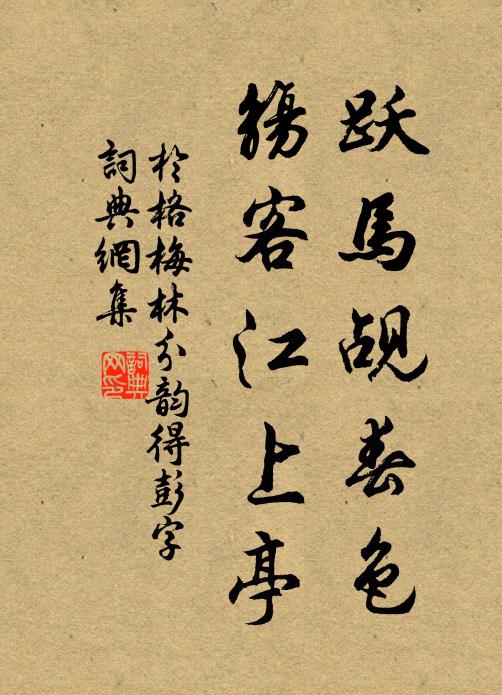 跃馬觇春色
觞客江上亭
於格梅林分韵得彭字
詞典網集